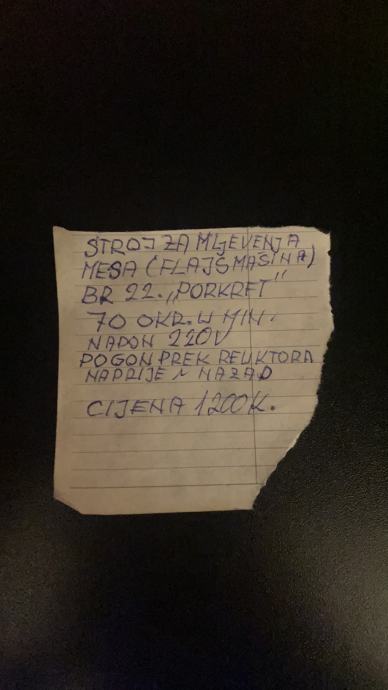 STROJ ZA MLJEVENJA
MESA (FLAJŠMAŠINA)
BR 22. „PORKRET"
70 OKR. U MIN.
NAPON 220V
POGON PREK REUKTORA
NAPRIJE N NAZAD
CIJENA 1200K.